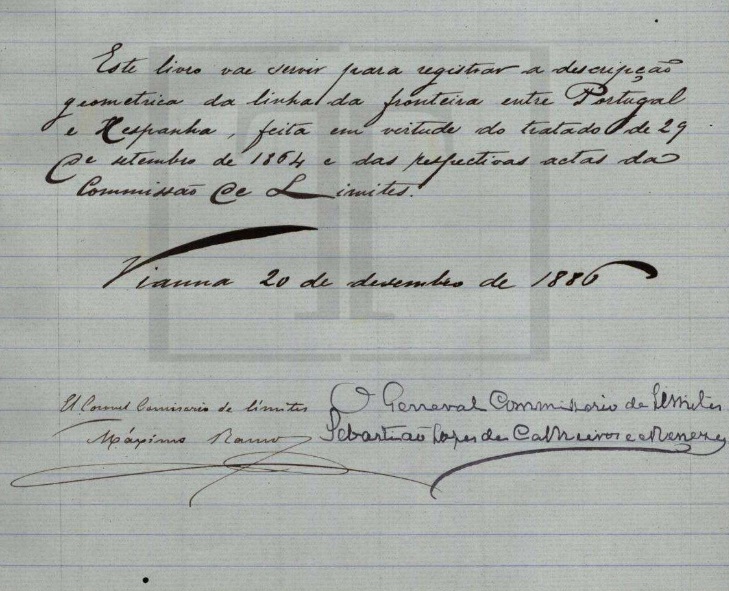 Este livro vae servir para registrar a descripção
geometrica da linha da fronteira entre Portugal
e Hespanha, feita em virtude do tratado de 29
de setembro de 1864 e das respectivas actas da
Commissão de Limites.
Vianna 20 de desembro de 1886
El Coronel Comisario de límites
Máximo Ramo
O General Commissario de Limites
Sebastião Lopes de Calheiros e Menezes